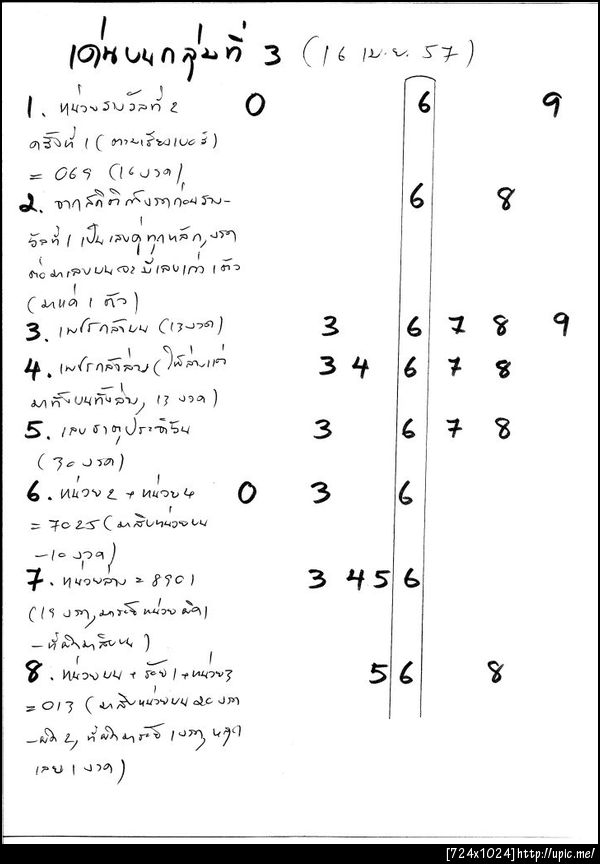 เด่นบนกลุ่มที่ 3 (16 เม.ย. 57)
1. หน่วยรางวัลที่ 2 0 6 9
ครั้งที่ 1 (ตามเรียงเบอร์)
= 069 (16 งวด)
2. จากสถิติถ้างวดก่อนราง- 6 8
วัลที่ 1 เป็นเลขคู่ทุกหลัก, งวด
ต่อมาเลขบนจะมีเลขเก่า 1 ตัว
(มาแค่ 1 ตัว)
3. เพชรกล้าบน (13 งวด) 3 6 7 8 9
4. เพชรกล้าล่าง (ให้ล่างแต่ 3 4 6 7 8
มาทั้งบนทั้งล่าง, 13 งวด)
5. เลขธาตุประจำวัน 3 6 7 8
(30 งวด)
6. หน่วย 2 + หน่วย 4 0 3 6
= 7025 (มาสิบหน่วยบน
-10 งวด)
7. หน่วยล่าง = 8901 3 4 5 6
(19 งวด, มาร้อยหน่วยผิด 1
-ที่ผิดมาสิบบน)
8. หน่วยบน + ร้อย 1 + หน่วย 3 5 6 8
= 013 (มาสิบหน่วยบน 20 งวด
-ผิด 2, ที่ผิดมาร้อย 1 งวด, หลุด
เลย 1 งวด)
[724x1024]http://upic.me/